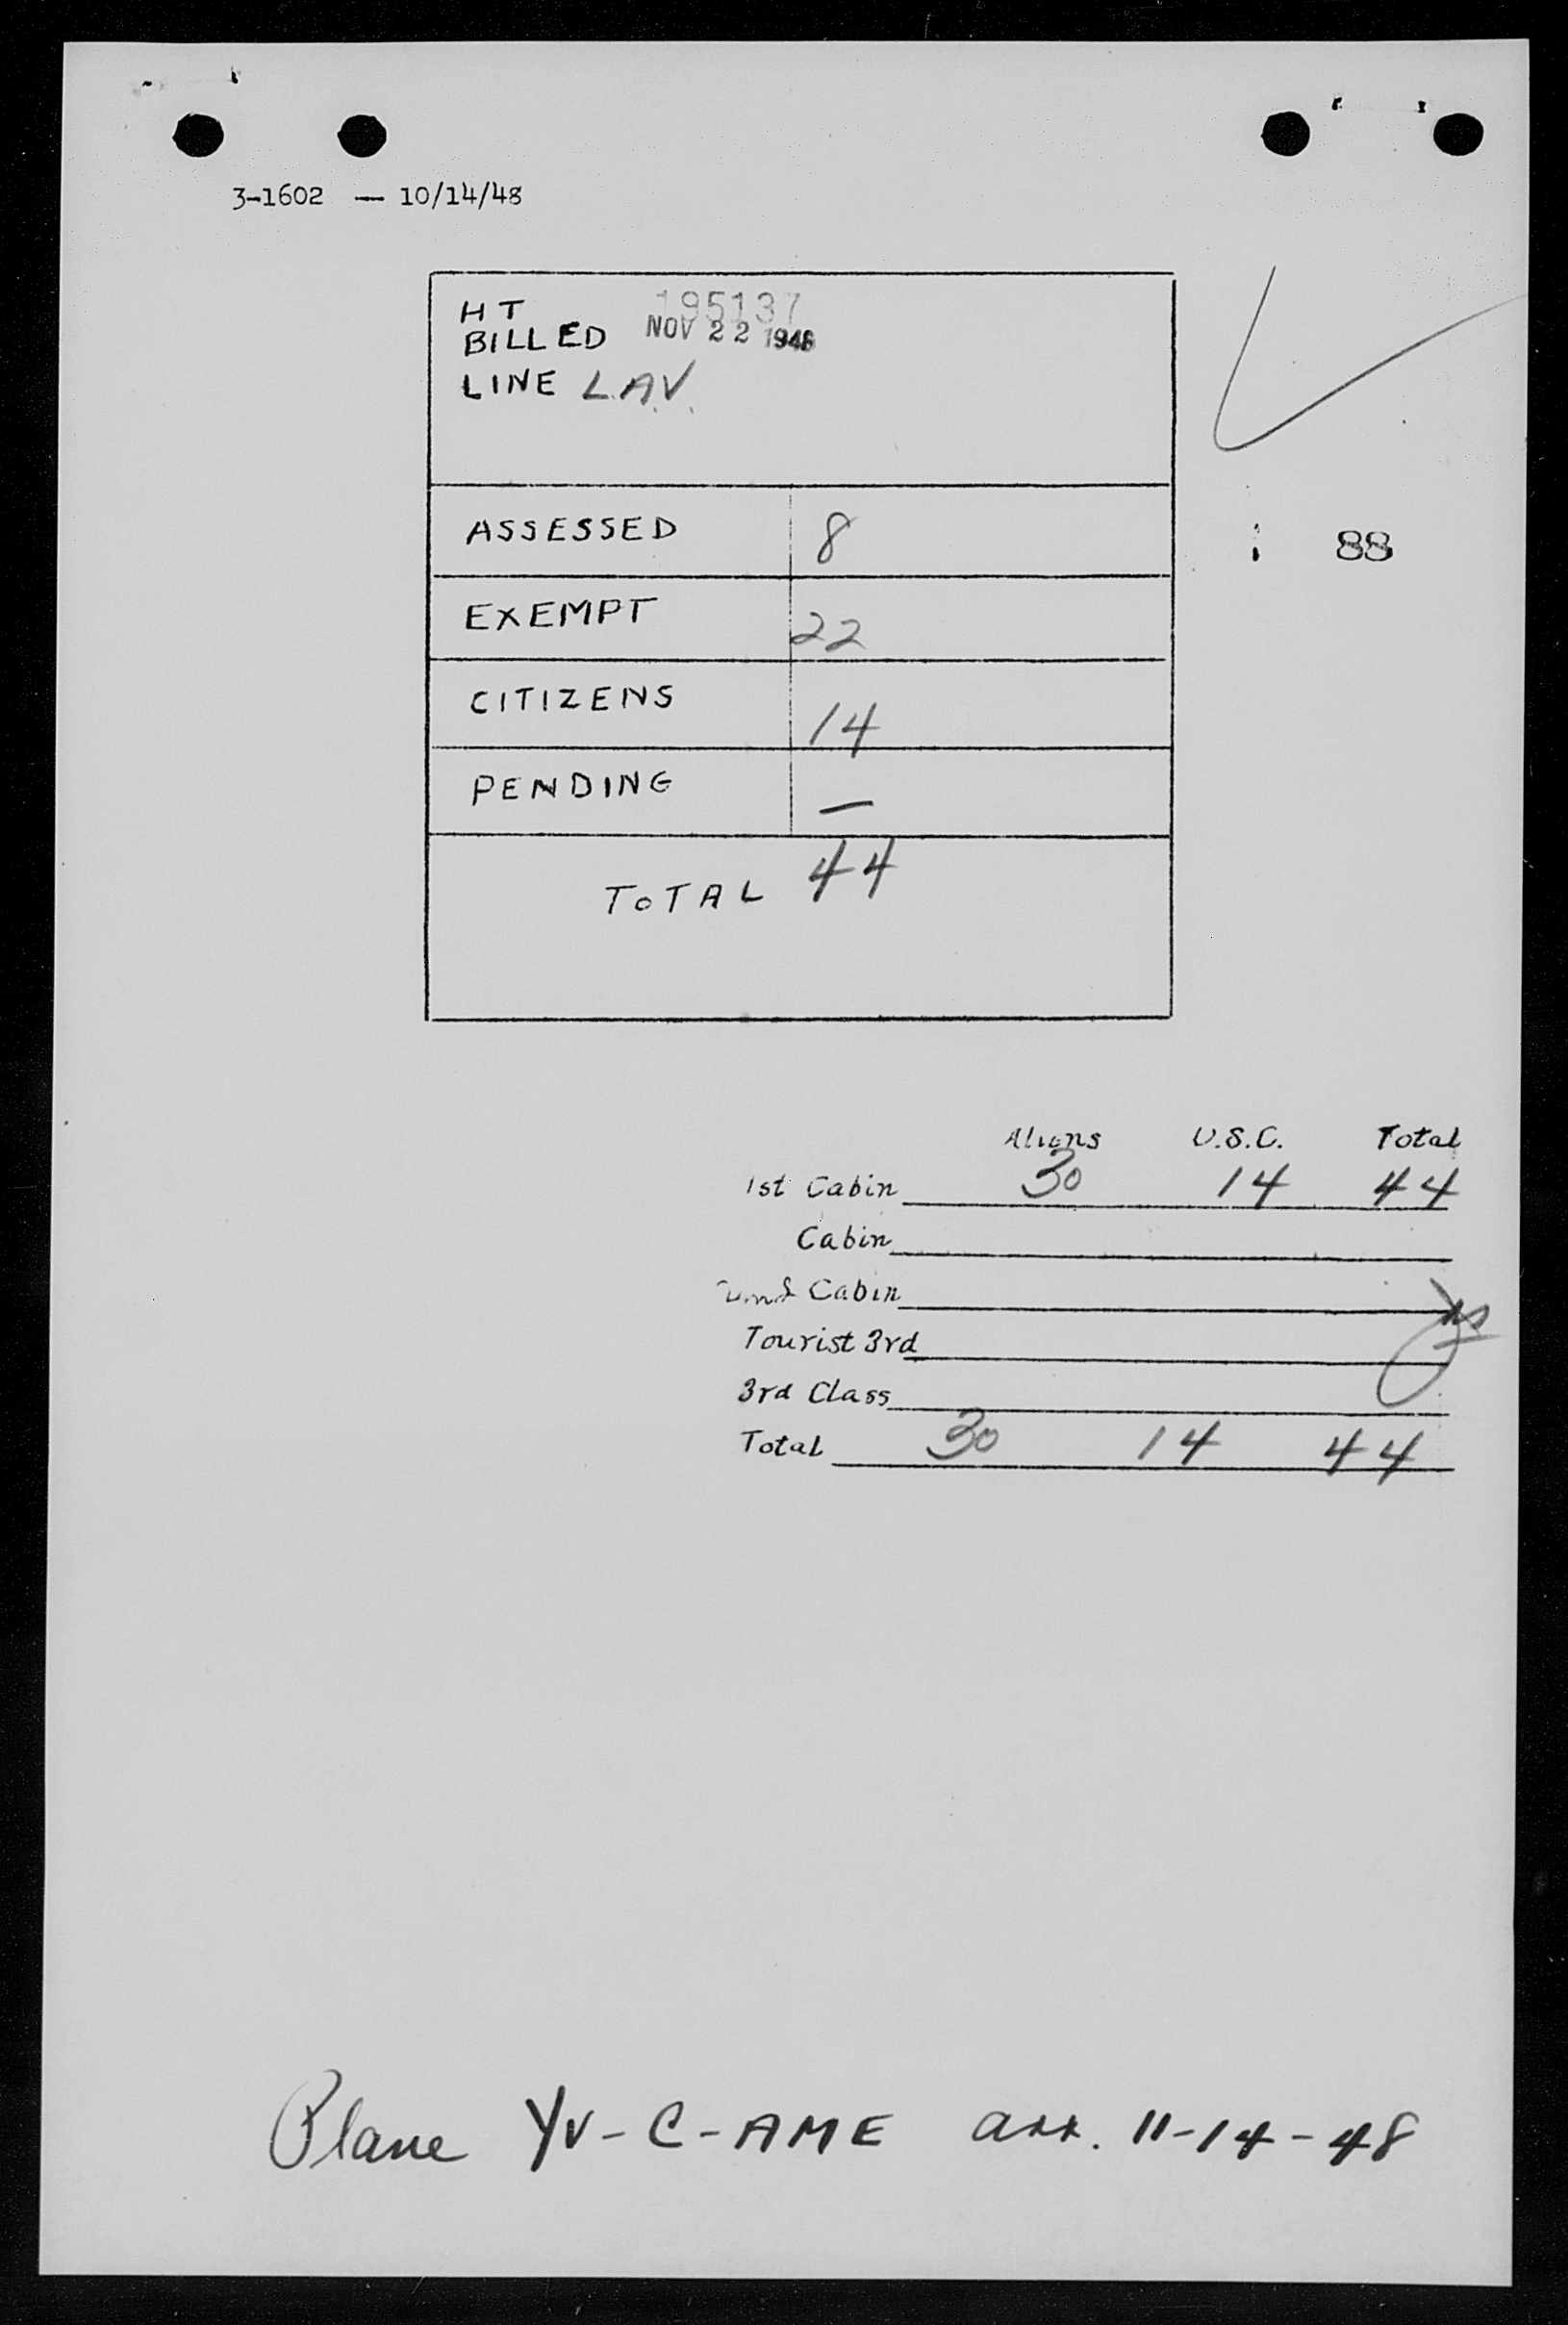 3-1602 — 10/14/48
HT 195137
BILLED NOV 22 1948
LINE L.A.V.
ASSESSED 8
88
EXEMPT 22
CITIZENS 14
PENDING —
TOTAL 44
Aliens U.S.C. Total
1st Cabin 30 14 44
Cabin
Cabin
Tourist 3rd
3rd Class
Total 30 14 44
Plane YV-C-AME arr. 11-14-48